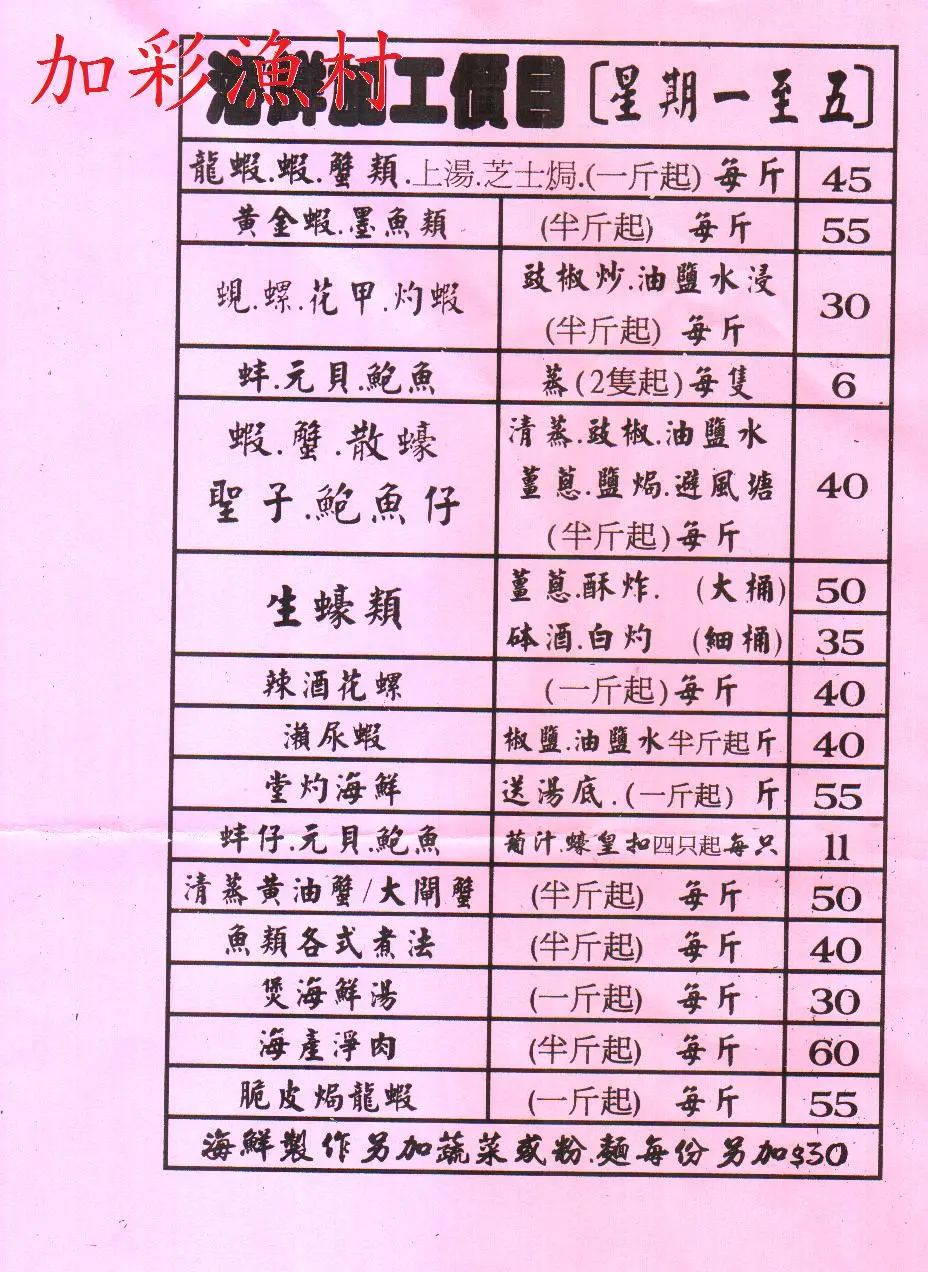 加彩漁村
海鮮加工價目〔星期一至五〕
龍蝦.蝦.蟹類.上湯.芝士焗.(一斤起) 每斤 45
黃金蝦.墨魚類 (半斤起) 每斤 55
蜆.螺.花甲.灼蝦 豉椒炒.油鹽水浸 30
(半斤起) 每斤
蚌.元貝.鮑魚 蒸(2隻起)每隻 6
蝦.蟹.散蠔 清蒸.豉椒.油鹽水
聖子.鮑魚仔 薑蔥.鹽焗.避風塘 40
(半斤起)每斤
生蠔類 薑蔥.酥炸. (大桶) 50
砵酒.白灼 (細桶) 35
辣酒花螺 (一斤起)每斤 40
瀨尿蝦 椒鹽.油鹽水半斤起斤 40
堂灼海鮮 送湯底.(一斤起) 斤 55
蚌仔.元貝.鮑魚 葡汁.蠔皇扣四只起每只 11
清蒸黃油蟹/大閘蟹 (半斤起) 每斤 50
魚類各式煮法 (半斤起) 每斤 40
煲海鮮湯 (一斤起) 每斤 30
海產淨肉 (半斤起) 每斤 60
脆皮焗龍蝦 (一斤起) 每斤 55
海鮮製作另加蔬菜或粉.麵每份另加$30